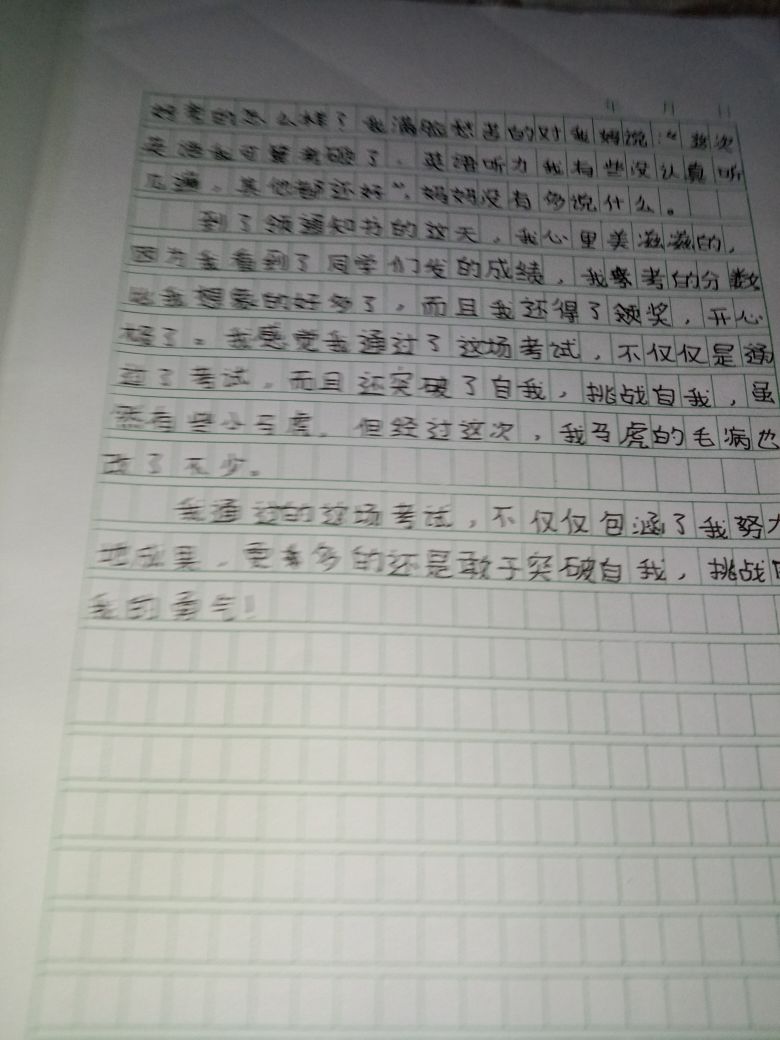 年 月 日
考的怎么样？我满脸愁苦的对我妈说：“这次
英语我可算考砸了，英语听力我有些没认真听
，其他都还好”，妈妈没有多说什么。
到了领通知书的这天，我心里美滋滋的，
因为我看到了同学们发的成绩，我考的分数
比我想象的好多了，而且我还得了领奖，开心
了。我感觉我通过了这场考试，不仅仅是通
过了考试，而且还突破了自我，挑战自我，虽
然有些小马虎，但经过这次，我马虎的毛病也
改了不少。
我通过的这场考试，不仅仅包涵了我努力
地成果，更多的还是敢于突破自我，挑战自
我的勇气！